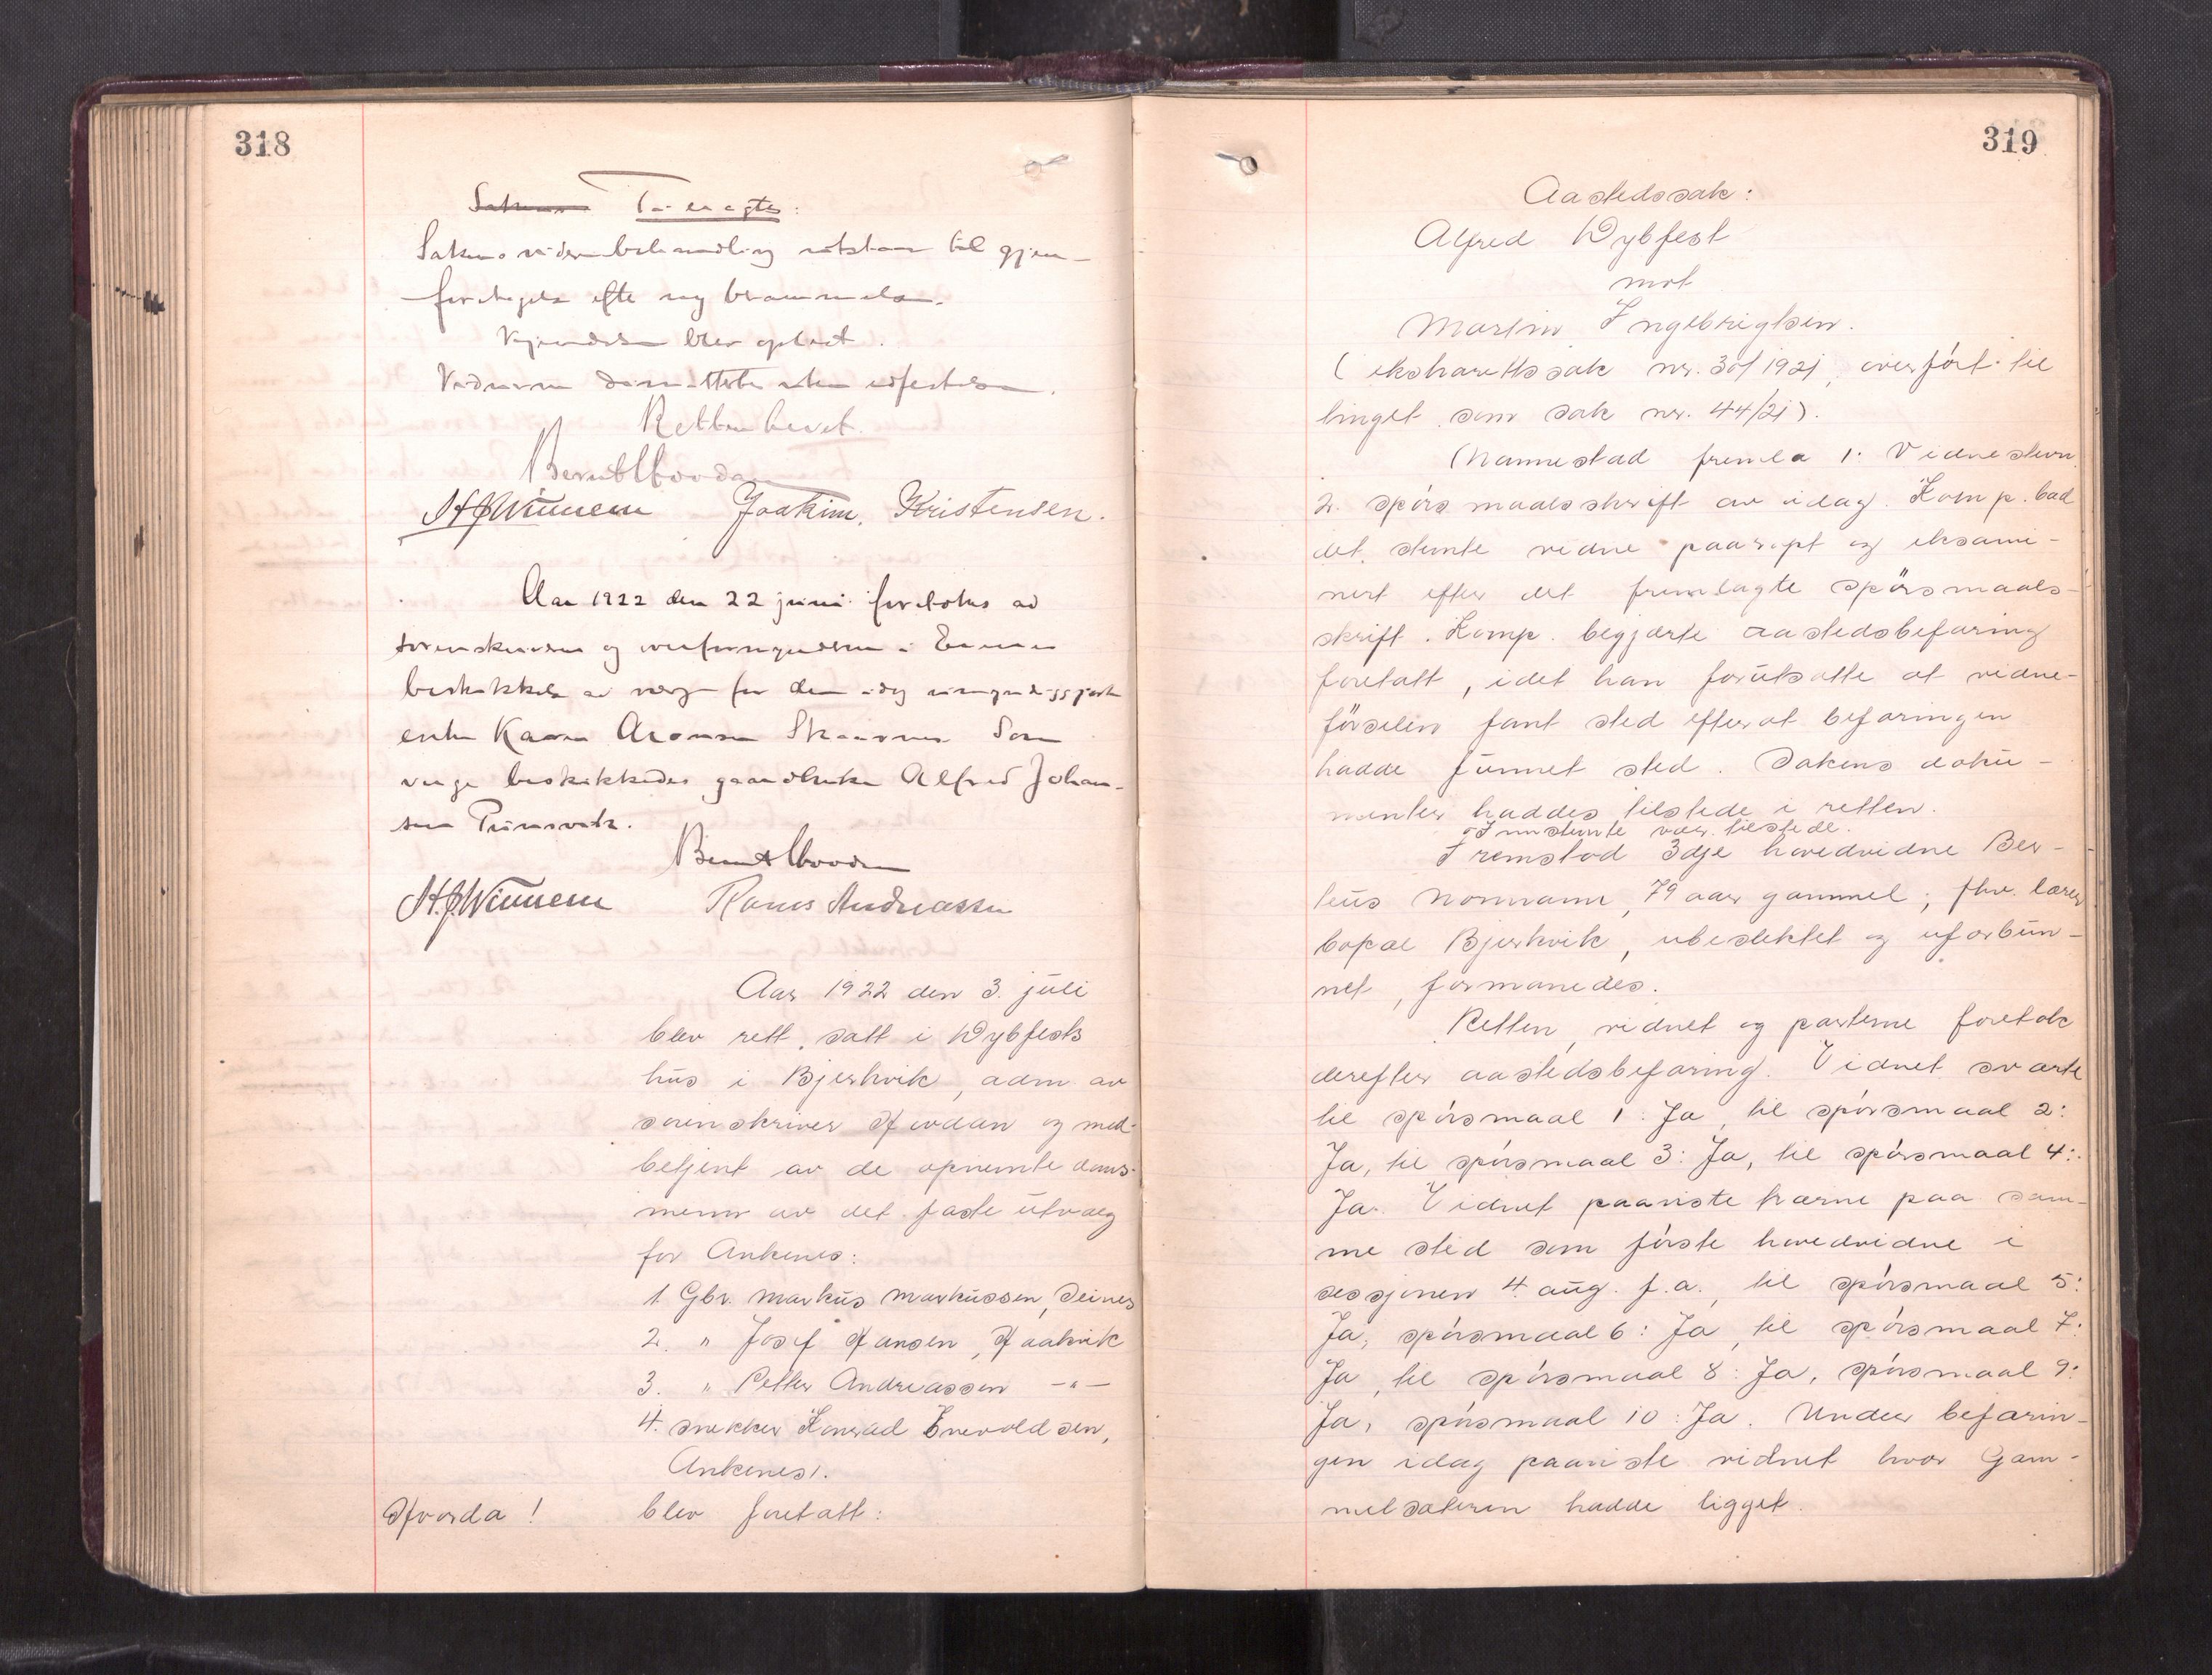 318
Saken Tilraates:
Sakens videre behandling utstaar til gjen-
foretagelse efter ny berammelse.
Kjendelsen blev oplæst.
Vidnerne dimitterte uten edfestelse.
Retten hævet.
Bernt Hovdan
H J Winnem Joakim Kristensen.
Aar 1922 den 22 juni foretokes av
sorenskriveren og overformynderen i Evenes
beskikkelse av verge for den idag umyndiggjorte
enke Karen Aronsen Skaanes Som
verge beskikkedes gaardbruker Alfred Johan-
sen Prinsvik.
Bernt Hovdan
H. J Winnem Hans Andreassen
Aar 1922 den 3. juli
blev rett satt i Wybfests
hus i Bjerkvik, adm av
sorenskriver Hovdan og med-
betjent av de opnevnte doms-
menn av det faste utvalg
for Ankenes:
1. Gbr. Markus Markussen, Seines
2. " Josef Hansen, Haakvik
3. " Petter Andreassen -"-
4. snekker Konrad Enevoldsen,
Ankenes.
Hvorda! blev foretatt:
319
Aastedssak:
Alfred Wybfest
mot
Martin Ingebrigtsen.
(ekstrarettssak nr. 30/1921, overført til
tinget som sak nr. 44/21).
Mannestad fremla 1. Vidnestevn.
2. spørsmaalsskrift av idag. Komp. bad
det stevnte vidne paaropt og eksami-
nert efter det fremlagte spørsmaals-
skrift. Komp. begjærte aastedsbefaring
foretatt, idet han forutsatte at vidne-
førselen fant sted efterat befaringen
hadde funnet sted. Sakens doku-
menter haddes tilstede i retten.
Innstevnte var tilstede.
Fremstod 3dje hovedvidne Ber-
teus Normann, 79 aar gammel, fhv. lærer
bopæl Bjerkvik, ubeslektet og uforbun-
net, formanedes.
Retten, vidnet og parterne foretok
derefter aastedsbefaring. Vidnet svarte
til spørsmaal 1: Ja, til spørsmaal 2:
Ja, til spørsmaal 3: Ja, til spørsmaal 4:
Ja. Vidnet paaviste træerne paa sam-
me sted som første hovedvidne i
sessjonen 4. aug. f.a., til spørsmaal 5:
Ja, spørsmaal 6: Ja, til spørsmaal 7:
Ja, til spørsmaal 8: Ja, spørsmaal 9:
Ja, spørsmaal 10: Ja. Under befarin-
gen idag paaviste vidnet hvor Gam-
melsæteren hadde ligget.